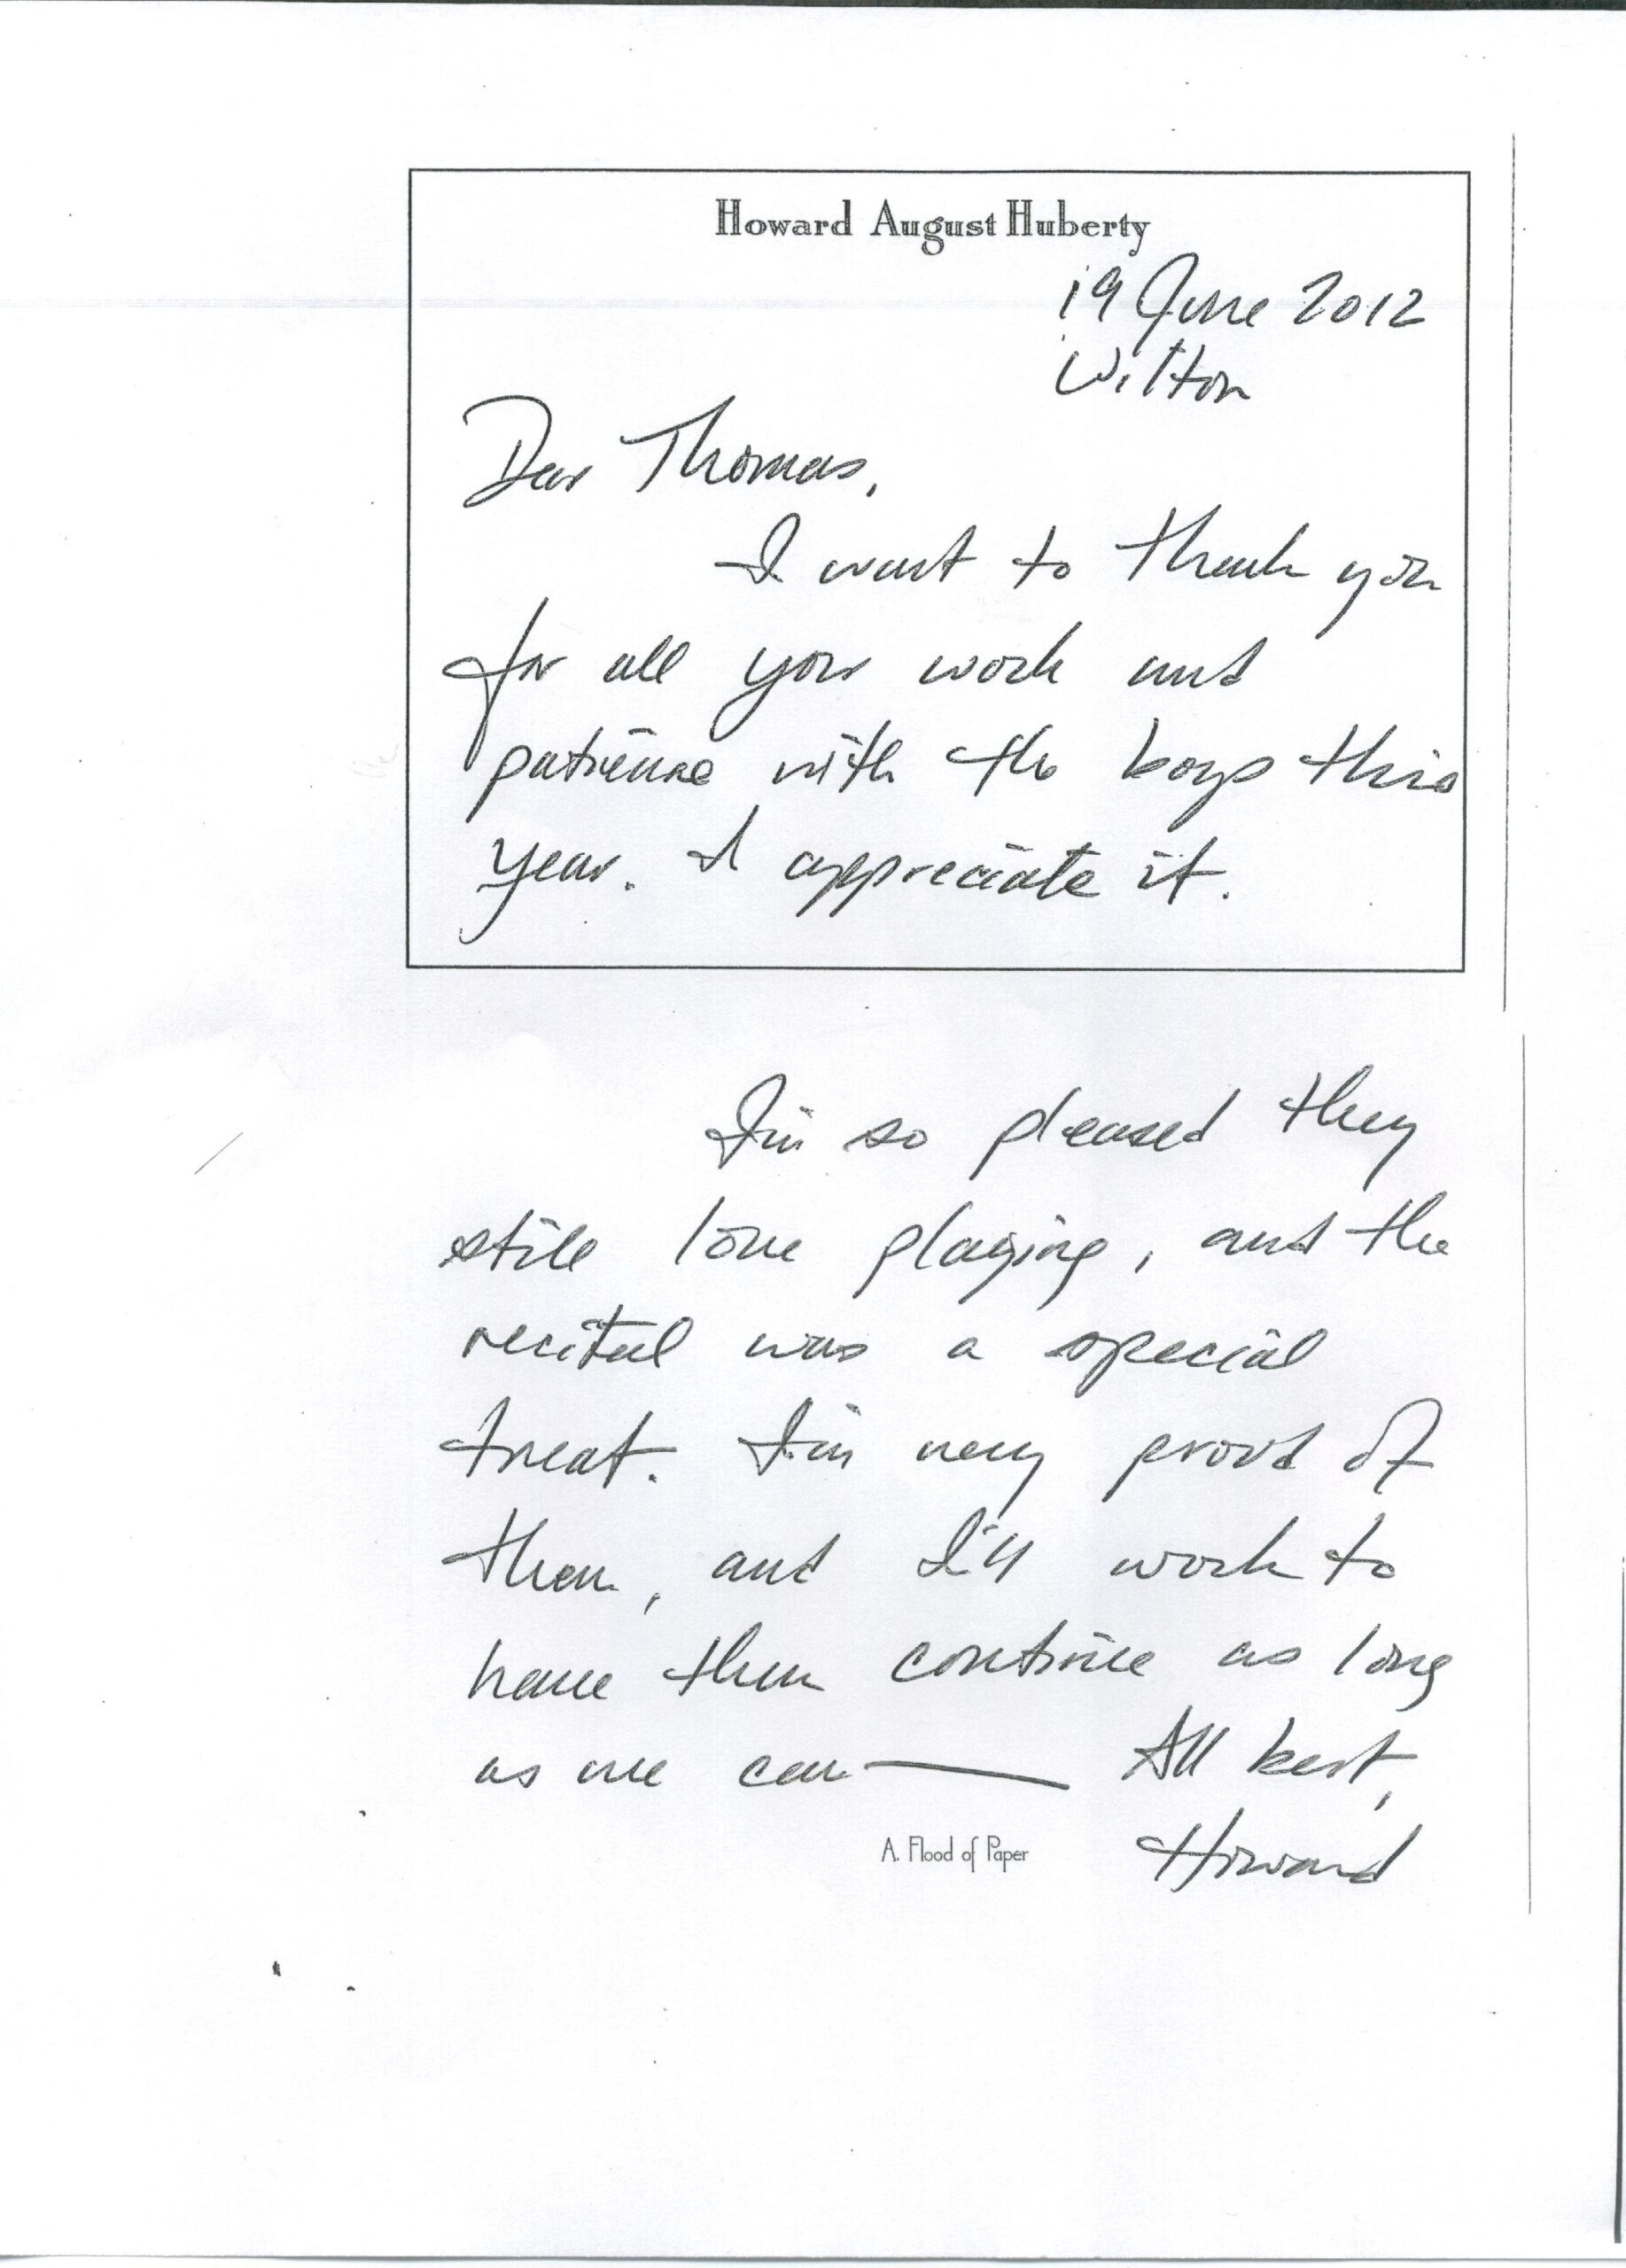 Howard August Huberty
19 June 2012
Wilton
Dear Thomas,
I want to thank you
for all your work and
patience with the boys this
year. I appreciate it.
I'm so pleased they
still love playing, and the
recital was a special
treat. I'm very proud of
them, and I'll work to
have them continue as long
as we can — All best,
A. Flood of Paper
Howard